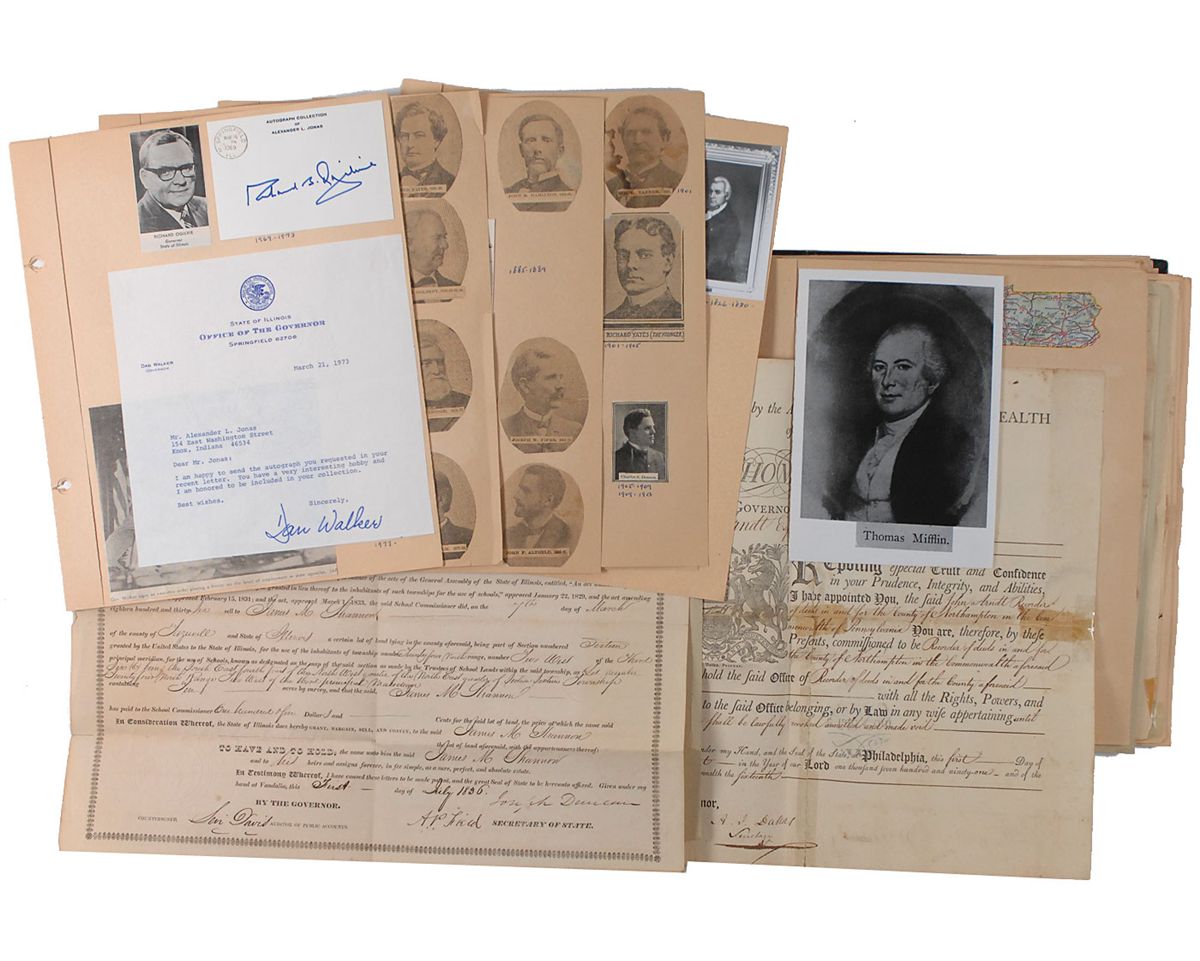 AUTOGRAPH COLLECTION
OF
ALEXANDER L. JONAS
SPRINGFIELD
Richard B. Ogilvie
RICHARD OGILVIE
Governor
State of Illinois
1969-1973
STATE OF ILLINOIS
OFFICE OF THE GOVERNOR
SPRINGFIELD 62706
DAN WALKER
GOVERNOR
March 21, 1973
Mr. Alexander L. Jonas
154 East Washington Street
Knox, Indiana 46534
Dear Mr. Jonas:
I am happy to send the autograph you requested in your
recent letter. You have a very interesting hobby and
I am honored to be included in your collection.
Best wishes.
Sincerely,
Dan Walker
1973-
JOHN M. HAMILTON,
1885-1889
JOSEPH W. FIFER,
JOHN P. ALTGELD,
RICHARD YATES (THE YOUNGER)
1901-1905
Charles S. Deneen
1905-1909
1909-1913
Thomas Mifflin.
of the acts of the General Assembly of the State of Illinois, entitled, "An act
granted in lieu thereof to the inhabitants of such townships for the use of schools," approved January 22, 1829, and the act amending
approved February 15, 1831; and the act, approved March 1, 1833, the said School Commissioner did, on the day of March
eighteen hundred and thirty six sell to James M Shannon
of the county of Tazewell and State of Illinois a certain lot of land lying in the county aforesaid, being part of Section numbered Sixteen
granted by the United States to the State of Illinois, for the use of the inhabitants of township number twenty four North range, number Two West of the Third
principal meridian, for the use of Schools, known as designated on the map of the said section as made by the Trustees of School Lands within the said township, as Lot number
containing Ten acres by survey, and that the said, James M Shannon
has paid to the School Commissioner One hundred & Dollars and Cents for the said lot of land, the price of which the same sold
In Consideration Whereof, the State of Illinois does hereby GRANT, BARGAIN, SELL, AND CONVEY, to the said James M Shannon
the lot of land aforesaid, with the appurtenances thereof:
TO HAVE AND TO HOLD, the same unto him the said James M Shannon
and to his heirs and assigns forever, in fee simple, as a sure, perfect, and absolute estate.
In Testimony Whereof, I have caused these letters to be made patent, and the great Seal of State to be hereunto affixed. Given under my
hand at Vandalia, this First day of July 1836.
Joseph Duncan
BY THE GOVERNOR.
COUNTERSIGNED Levi Davis AUDITOR OF PUBLIC ACCOUNTS. A.P. Field SECRETARY OF STATE.
by the
HEALTH
GOVERNO
Reposing especial Trust and Confidence
in your Prudence, Integrity, and Abilities,
I have appointed You, the said John Arndt Recorder
of deeds in and for the County of Northampton in the Com
monwealth of Pennsylvania You are, therefore, by these
Presents, commissioned to be Recorder of deeds in and for
the County of Northampton in the Commonwealth aforesaid
hold the said Office of Recorder of deeds in and for the County aforesaid
with all the Rights, Powers, and
to the said Office belonging, or by Law in any wise appertaining until
shall be lawfully revoked annulled and made void
under my Hand, and the Seal of the State, at Philadelphia, this first Day of
in the Year of our Lord one thousand seven hundred and ninety-one and of the
wealth the sixteenth
nor,
A. J. Dallas
Secretary